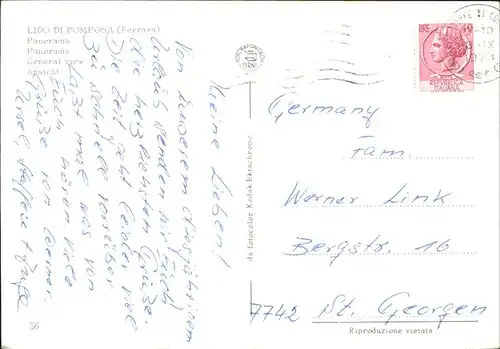 LIDO DI POMPOSA (Ferrara)
Panorama
Panorama
General view
Ansicht
Meine Lieben!
Von unserem diesjährigem
Urlaub senden wir Euch
die herzlichsten Grüße.
Die Zeit geht leider viel
zu schnell vorüber
Laßt mal was von
Euch hören viele
Grüße von
36
da fotocolor Kodak Ektachrome
LIRE 40
REPVBBLICA
ITALIANA
Germany
Fam.
Werner Link
Bergstr. 16
7742 St. Georgen
Riproduzione vietata